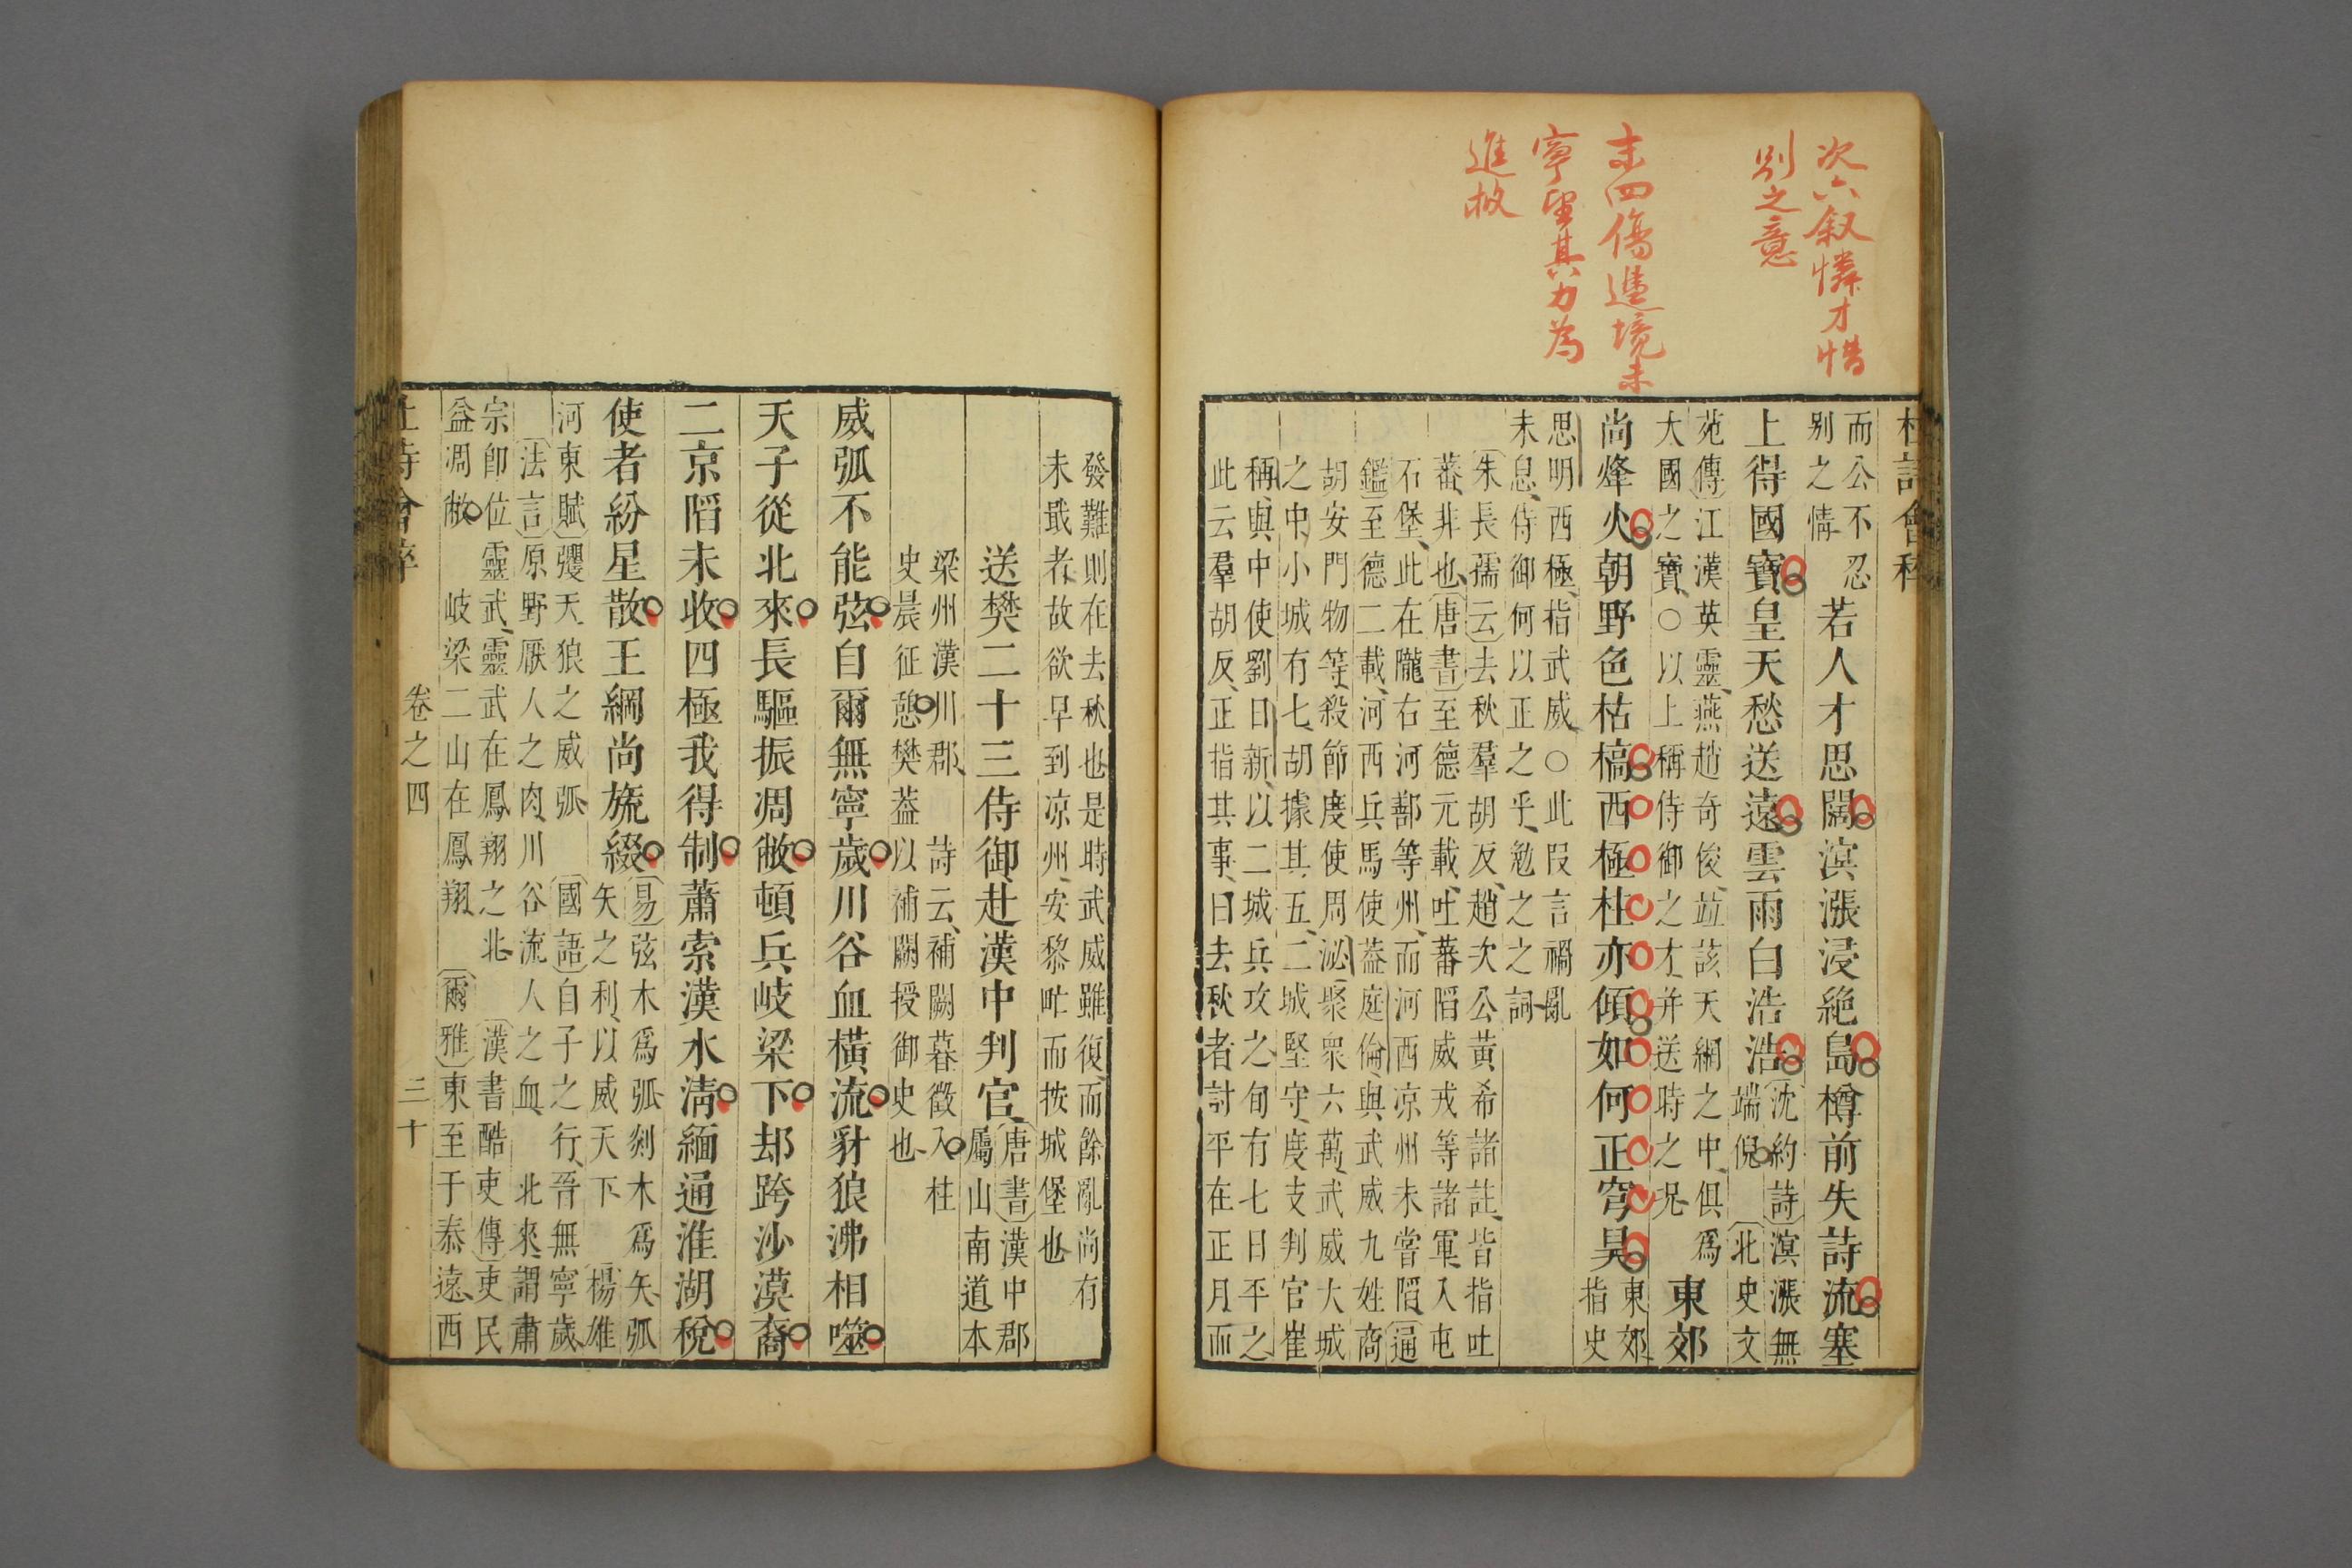 次六叙憐才惜
別之意
末四傷邊境未
寧望其力為
進故
而公不忍
别之情
若人才思闊溟漲浸絶島樽前失詩流塞
上得國寶皇天愁送遠雲雨白浩浩
沈約詩溟漲無
端倪 北史文
苑傳江漢英靈燕趙奇俊竝該天網之中俱爲
大國之寶○以上稱侍御之才并送時之况
東郊
尚烽火朝野色枯槁西極柱亦傾如何正穹昊
東郊
指史
思明西極指武威○此叚言禍亂
未息侍御何以正之乎勉之之詞
朱長孺云去秋羣胡反趙次公黄希諸註皆指吐
蕃非也唐書至德元載吐蕃䧟威戎等諸軍入屯
石堡此在隴右河鄯等州而河西凉州未嘗䧟通
鑑至德二載河西兵馬使葢庭倫與武威九姓商
胡安門物等殺節度使周泌聚衆六萬武威大城
之中小城有七胡據其五二城堅守度支判官崔
稱與中使劉日新以二城兵攻之旬有七日平之
此云羣胡反正指其事曰去秋者討平在正月而
發難則在去秋也是時武威雖復而餘亂尚有
未戢者故欲早到凉州安黎甿而按城堡也
送樊二十三侍御赴漢中判官
唐書漢中郡
屬山南道本
梁州漢川郡 詩云補闕暮徵入柱
史晨征憩樊葢以補闕授御史也
威弧不能弦自爾無寧歲川谷血橫流豺狼沸相噬
天子從北來長驅振凋敝頓兵岐梁下却跨沙漠裔
二京䧟未收四極我得制蕭索漢水淸緬通淮湖稅
使者紛星散王綱尚旒綴
易弦木爲弧剡木爲矢弧
矢之利以威天下 楊雄
河東賦彏天狼之威弧 國語自子之行晉無寧歲
法言原野厭人之肉川谷流人之血 北來謂肅
宗卽位靈武靈武在鳳翔之北 漢書酷吏傳吏民
益凋敝 岐梁二山在鳳翔 爾雅東至于泰遠西
卷之四
三十